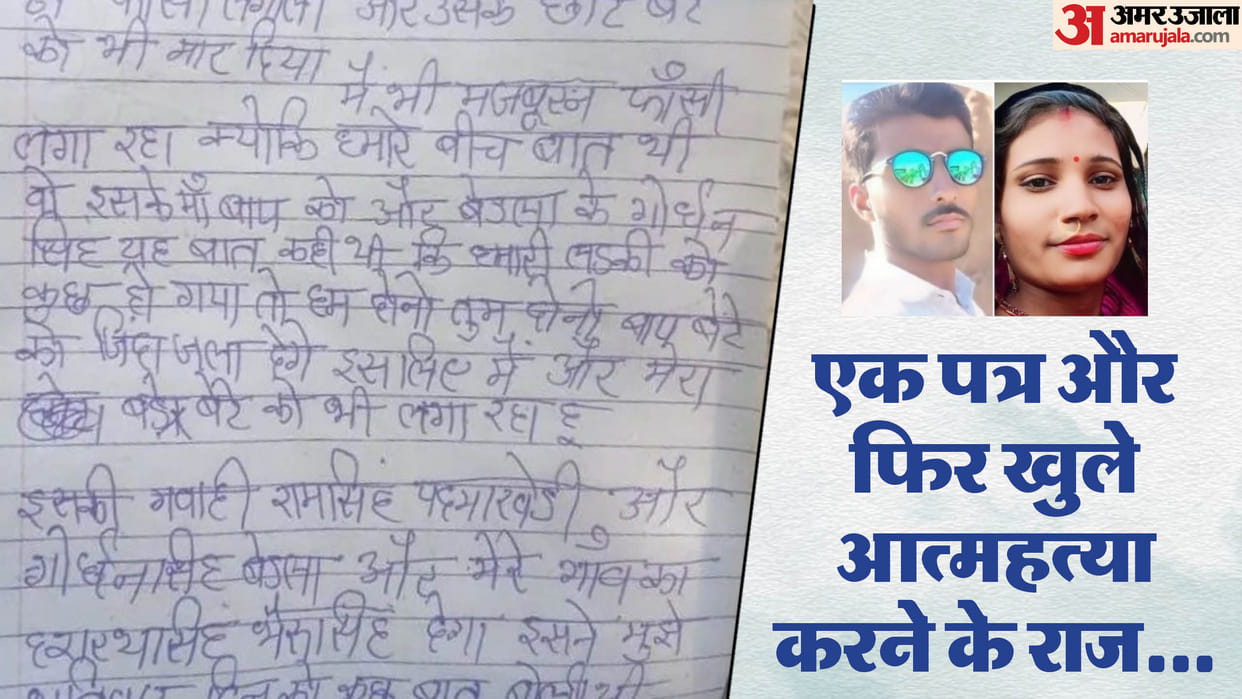 को भी मार दिया
मैं भी मजबूरन फाँसी
लगा रहा क्योकि हमारे बीच बात थी
वो इसके माँ बाप को और बेडला के गोर्धन
सिंह यह बात कही थी कि हमारी लडकी को
कुछ हो गया तो हम दोनो तुम दोनो बाप बेटे
को जिंदा जला देंगे इसलिए मैं और मेरा
बड़े बेटे को भी लगा रहा हू
इसकी गवाही रामसिंह पदमाखेडी और
गोर्धनसिंह और मेरे गाँव का
भैरूसिंह देगा इसने मुझे
अमर उजाला
amarujala.com
एक पत्र और
फिर खुले
आत्महत्या
करने के राज...